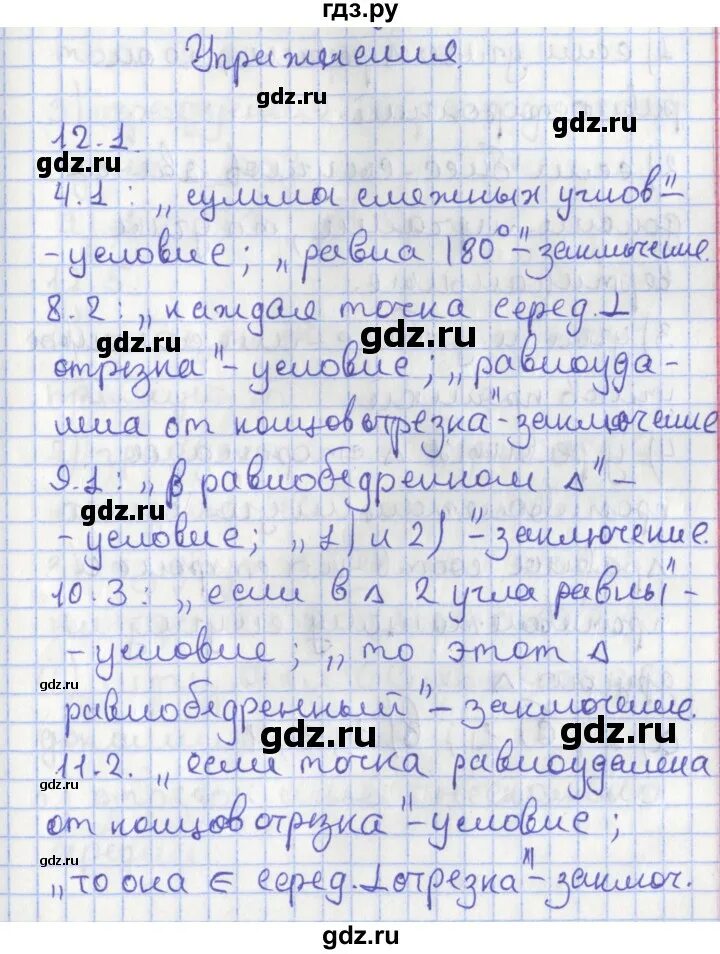 гдз.ру
Упражнения
gdz.ru
12.1.
gdz.ru
gdz.ru
4.1: „сумма смежных углов"-
-условие; „равна 180°"-заключение.
8.2: „каждая точка серед. ⊥
gdz.ru
gdz.ru
отрезка"- условие; „равноуда-
лена от концов отрезка"-заключение
9.1: „в равнобедренном Δ"-
gdz.ru
-условие; „1) и 2)"-заключение.
10.3: „если в Δ 2 угла равны"-
-условие; „то этот Δ
gdz.ru
равнобедренный"-заключение.
gdz.ru
gdz.ru
11.2. „если точка равноудалена
gdz.ru
от концов отрезка"-условие;
gdz.ru
„то она ∈ серед. ⊥ отрезка"-заключ.
gdz.ru
gdz.ru